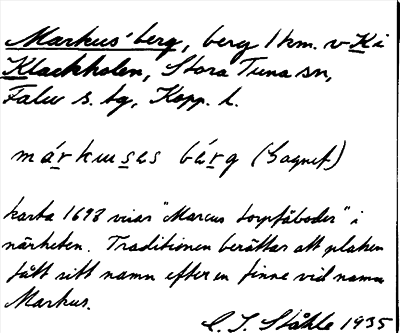 Markus' berg, berg 1 km. v K i
Klackholen, Stora Tuna sn,
Falu s. tg, Kopp. l.
márkuses bérg (Sagnef)
karta 1693 visar "Marcus torpfäboder" i
närheten. Traditionen berättar att platsen
fått sitt namn efter en finne vid namn
Markus.
C. I. Ståhle 1935